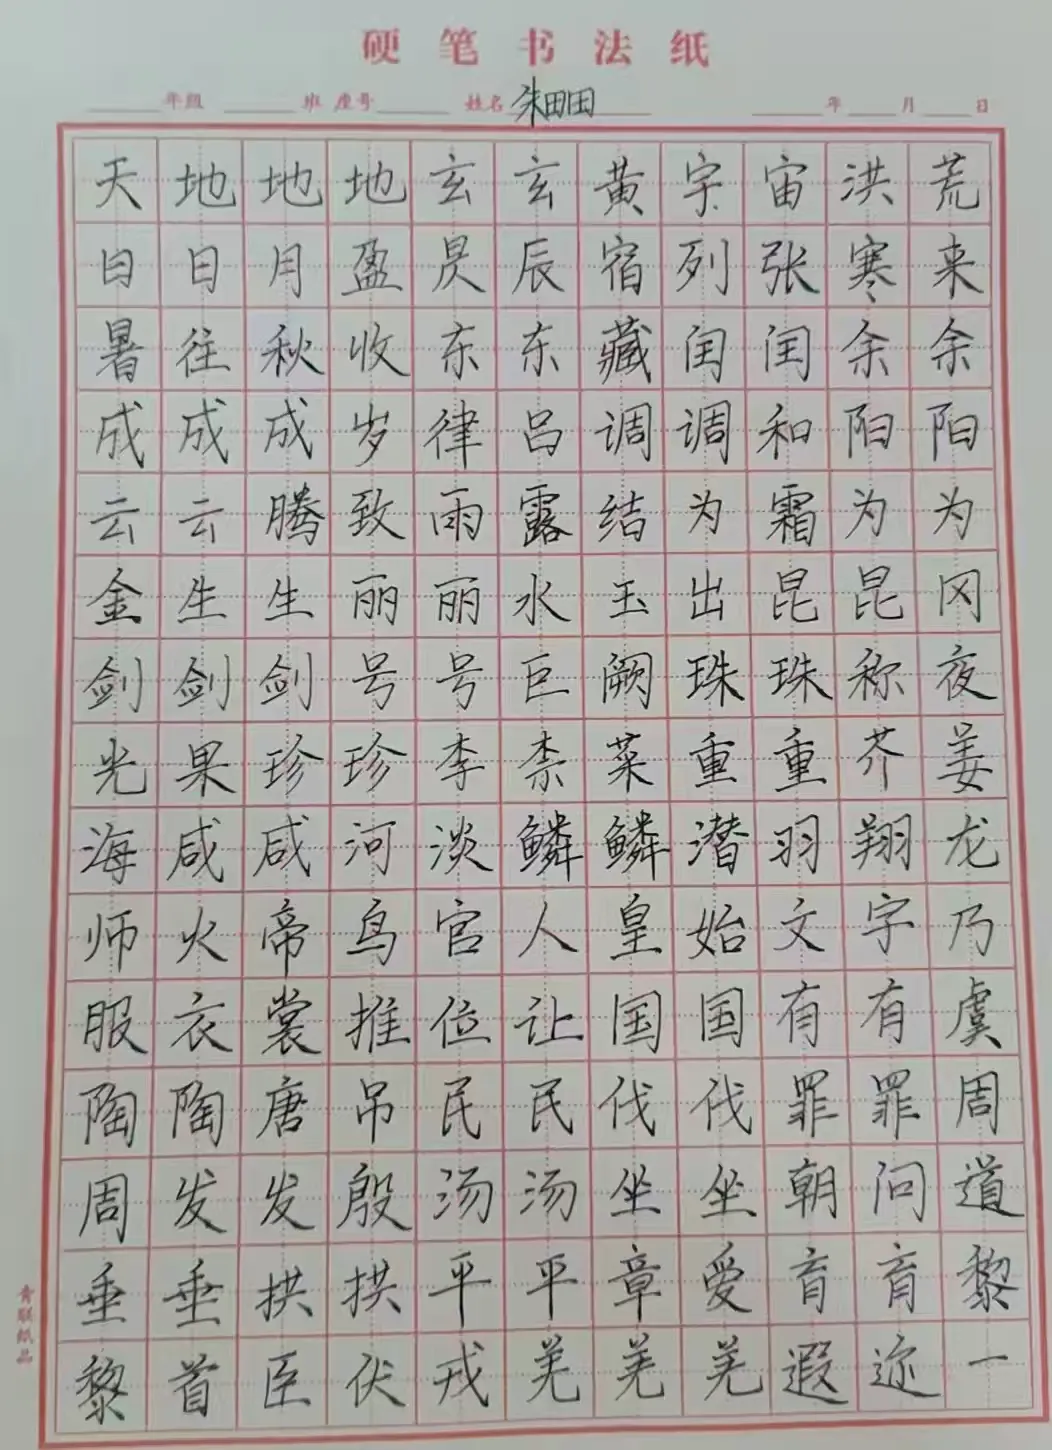 硬笔书法纸
年级 班 座号 姓名 朱田田 年 月 日
天地地地玄玄黄宇宙洪荒
日日月盈昃辰宿列张寒来
暑往秋收东东藏闰闰余余
成成成岁律吕调调和阳阳
云云腾致雨露结为霜为为
金生生丽丽水玉出昆昆冈
剑剑剑号号巨阙珠珠称夜
光果珍珍李柰菜重重芥姜
海咸咸河淡鳞鳞潜羽翔龙
师火帝鸟官人皇始文字乃
服衣裳推位让国国有有虞
陶陶唐吊民民伐伐罪罪周
周发发殷汤汤坐坐朝问道
垂垂拱拱平平章爱育育黎
黎首臣伏戎羌羌羌遐迩一
青联纸品